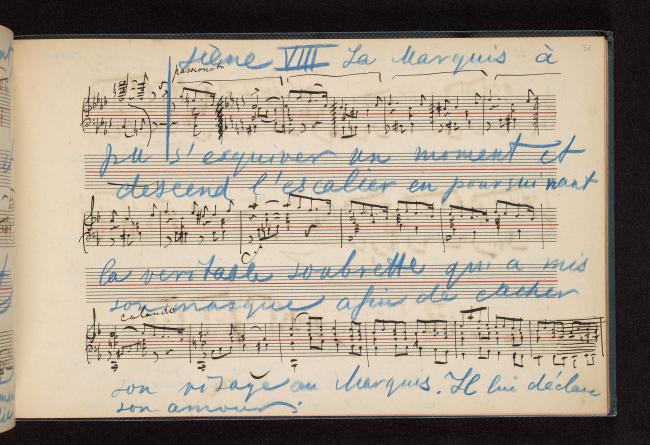 sième VIII La Marquis à
passionato
pu s'esquiver un moment et
descend l'escalier en poursuivant
la veritable soubrette qui a mis
son masque afin de cacher
calando
son visage au Marquis. Il lui déclare
son amour.